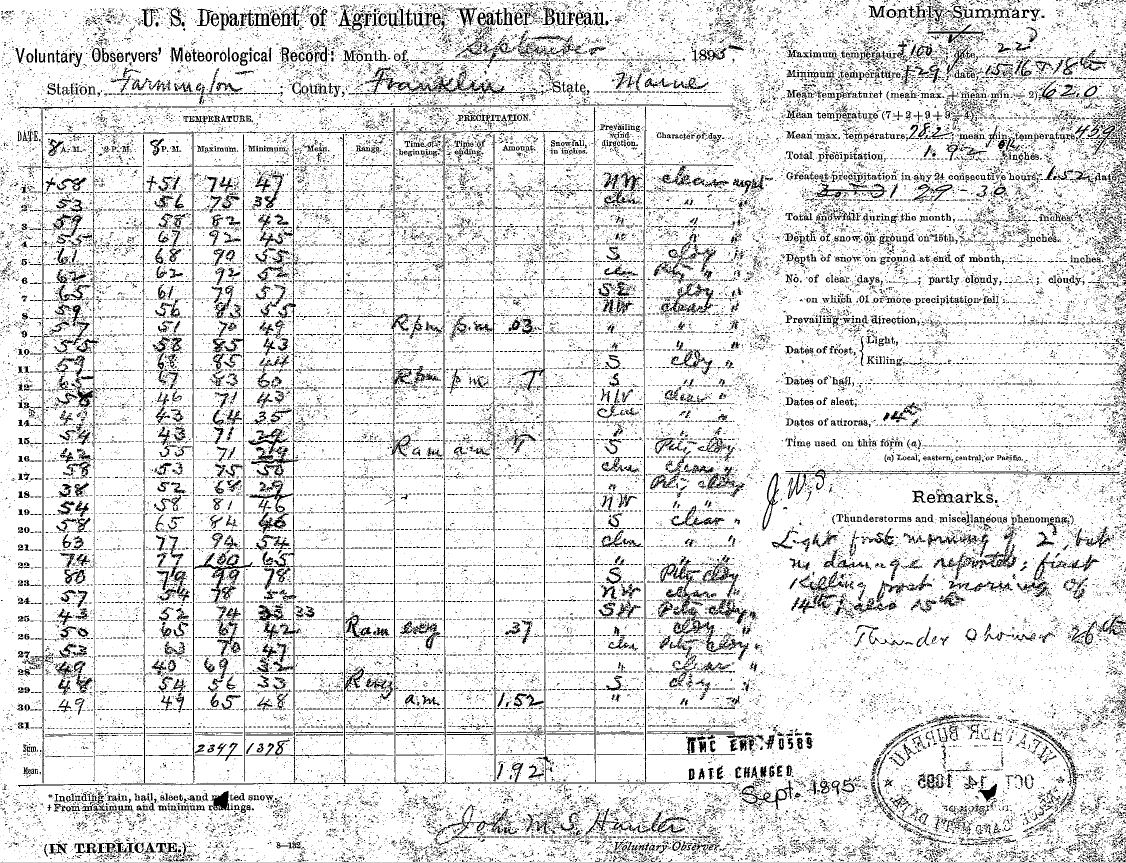 U. S. Department of Agriculture, Weather Bureau.
Voluntary Observers' Meteorological Record: Month of September 1895
Station, Farmington; County, Franklin; State, Maine
TEMPERATURE. PRECIPITATION.
DATE. 8 A. M. 2 P. M. 8 P. M. Maximum. Minimum. *Mean. Range. Time of beginning. Time of ending. Amount. Snowfall, in inches. Prevailing wind direction. Character of day.
1 +58 +51 74 47 NW clear night
2 53 56 75 38 clm " "
3 59 58 82 42 " " "
4 55 67 92 45 " " "
5 61 68 90 55 S cldy "
6 62 62 92 52 clm Ptly "
7 65 61 79 57 SE cldy "
8 59 56 83 55 NW clear "
9 57 51 70 49 R pm p.m .03 " " "
10 55 58 85 43 " " "
11 59 68 85 44 S cldy "
12 65 67 83 60 R pm pm T S " "
13 58 46 71 43 NW clear "
14 43 64 35 clm " "
15 54 43 71 29 " " "
16 42 55 71 29 R am a.m T S Ptly cldy
17 58 53 75 50 clm clear "
18 38 52 68 29 " Ptly cldy
19 54 58 81 46 NW " "
20 58 65 84 46 S clear "
21 63 77 94 54 clm " "
22 74 77 100 65 " " "
23 80 79 99 78 S Ptly cldy
24 57 54 78 52 NW clear "
25 43 52 74 33 33 SW Ptly cldy "
26 50 65 67 42 R a.m evg .37 " cldy "
27 53 63 70 47 clm Ptly cldy "
28 49 40 69 32 " clear "
29 48 54 56 33 R evg S cldy "
30 49 49 65 48 a.m 1.52 " " "
31
Sum. 2347 1378
Mean. 1.92
*Including rain, hail, sleet, and melted snow.
† From maximum and minimum readings.
(IN TRIPLICATE.) 8—132
John M. S. Hunter
Voluntary Observer.
DATE CHANGED
Sept. 1895
Monthly Summary.
Maximum temperature, +100 date, 22d
Minimum temperature, +29 date, 15-16 & 18th
Mean temperature† (mean max. + mean min. ÷ 2), 62.0
Mean temperature (7+2+9+9÷4),
Mean max. temperature, 78.2 mean min. temperature, 45.9
Total precipitation, 1.92 inches.
Greatest precipitation in any 24 consecutive hours, 1.52 date,
29-30
Total snowfall during the month, inches.
Depth of snow on ground on 15th, inches.
Depth of snow on ground at end of month, inches.
No. of clear days, ; partly cloudy, ; cloudy,
on which .01 or more precipitation fell
Prevailing wind direction,
Dates of frost, Light,
Killing,
Dates of hail,
Dates of sleet,
Dates of auroras, 14th
Time used on this form (a)
(a) Local, eastern, central, or Pacific.
J.W.S.
Remarks.
(Thunderstorms and miscellaneous phenomena.)
Light frost morning of 2d, but
no damage reported; first
Killing frost morning of
14th, also 15th
Thunder Shower 26th
WEATHER BUREAU
OCT 14 1895